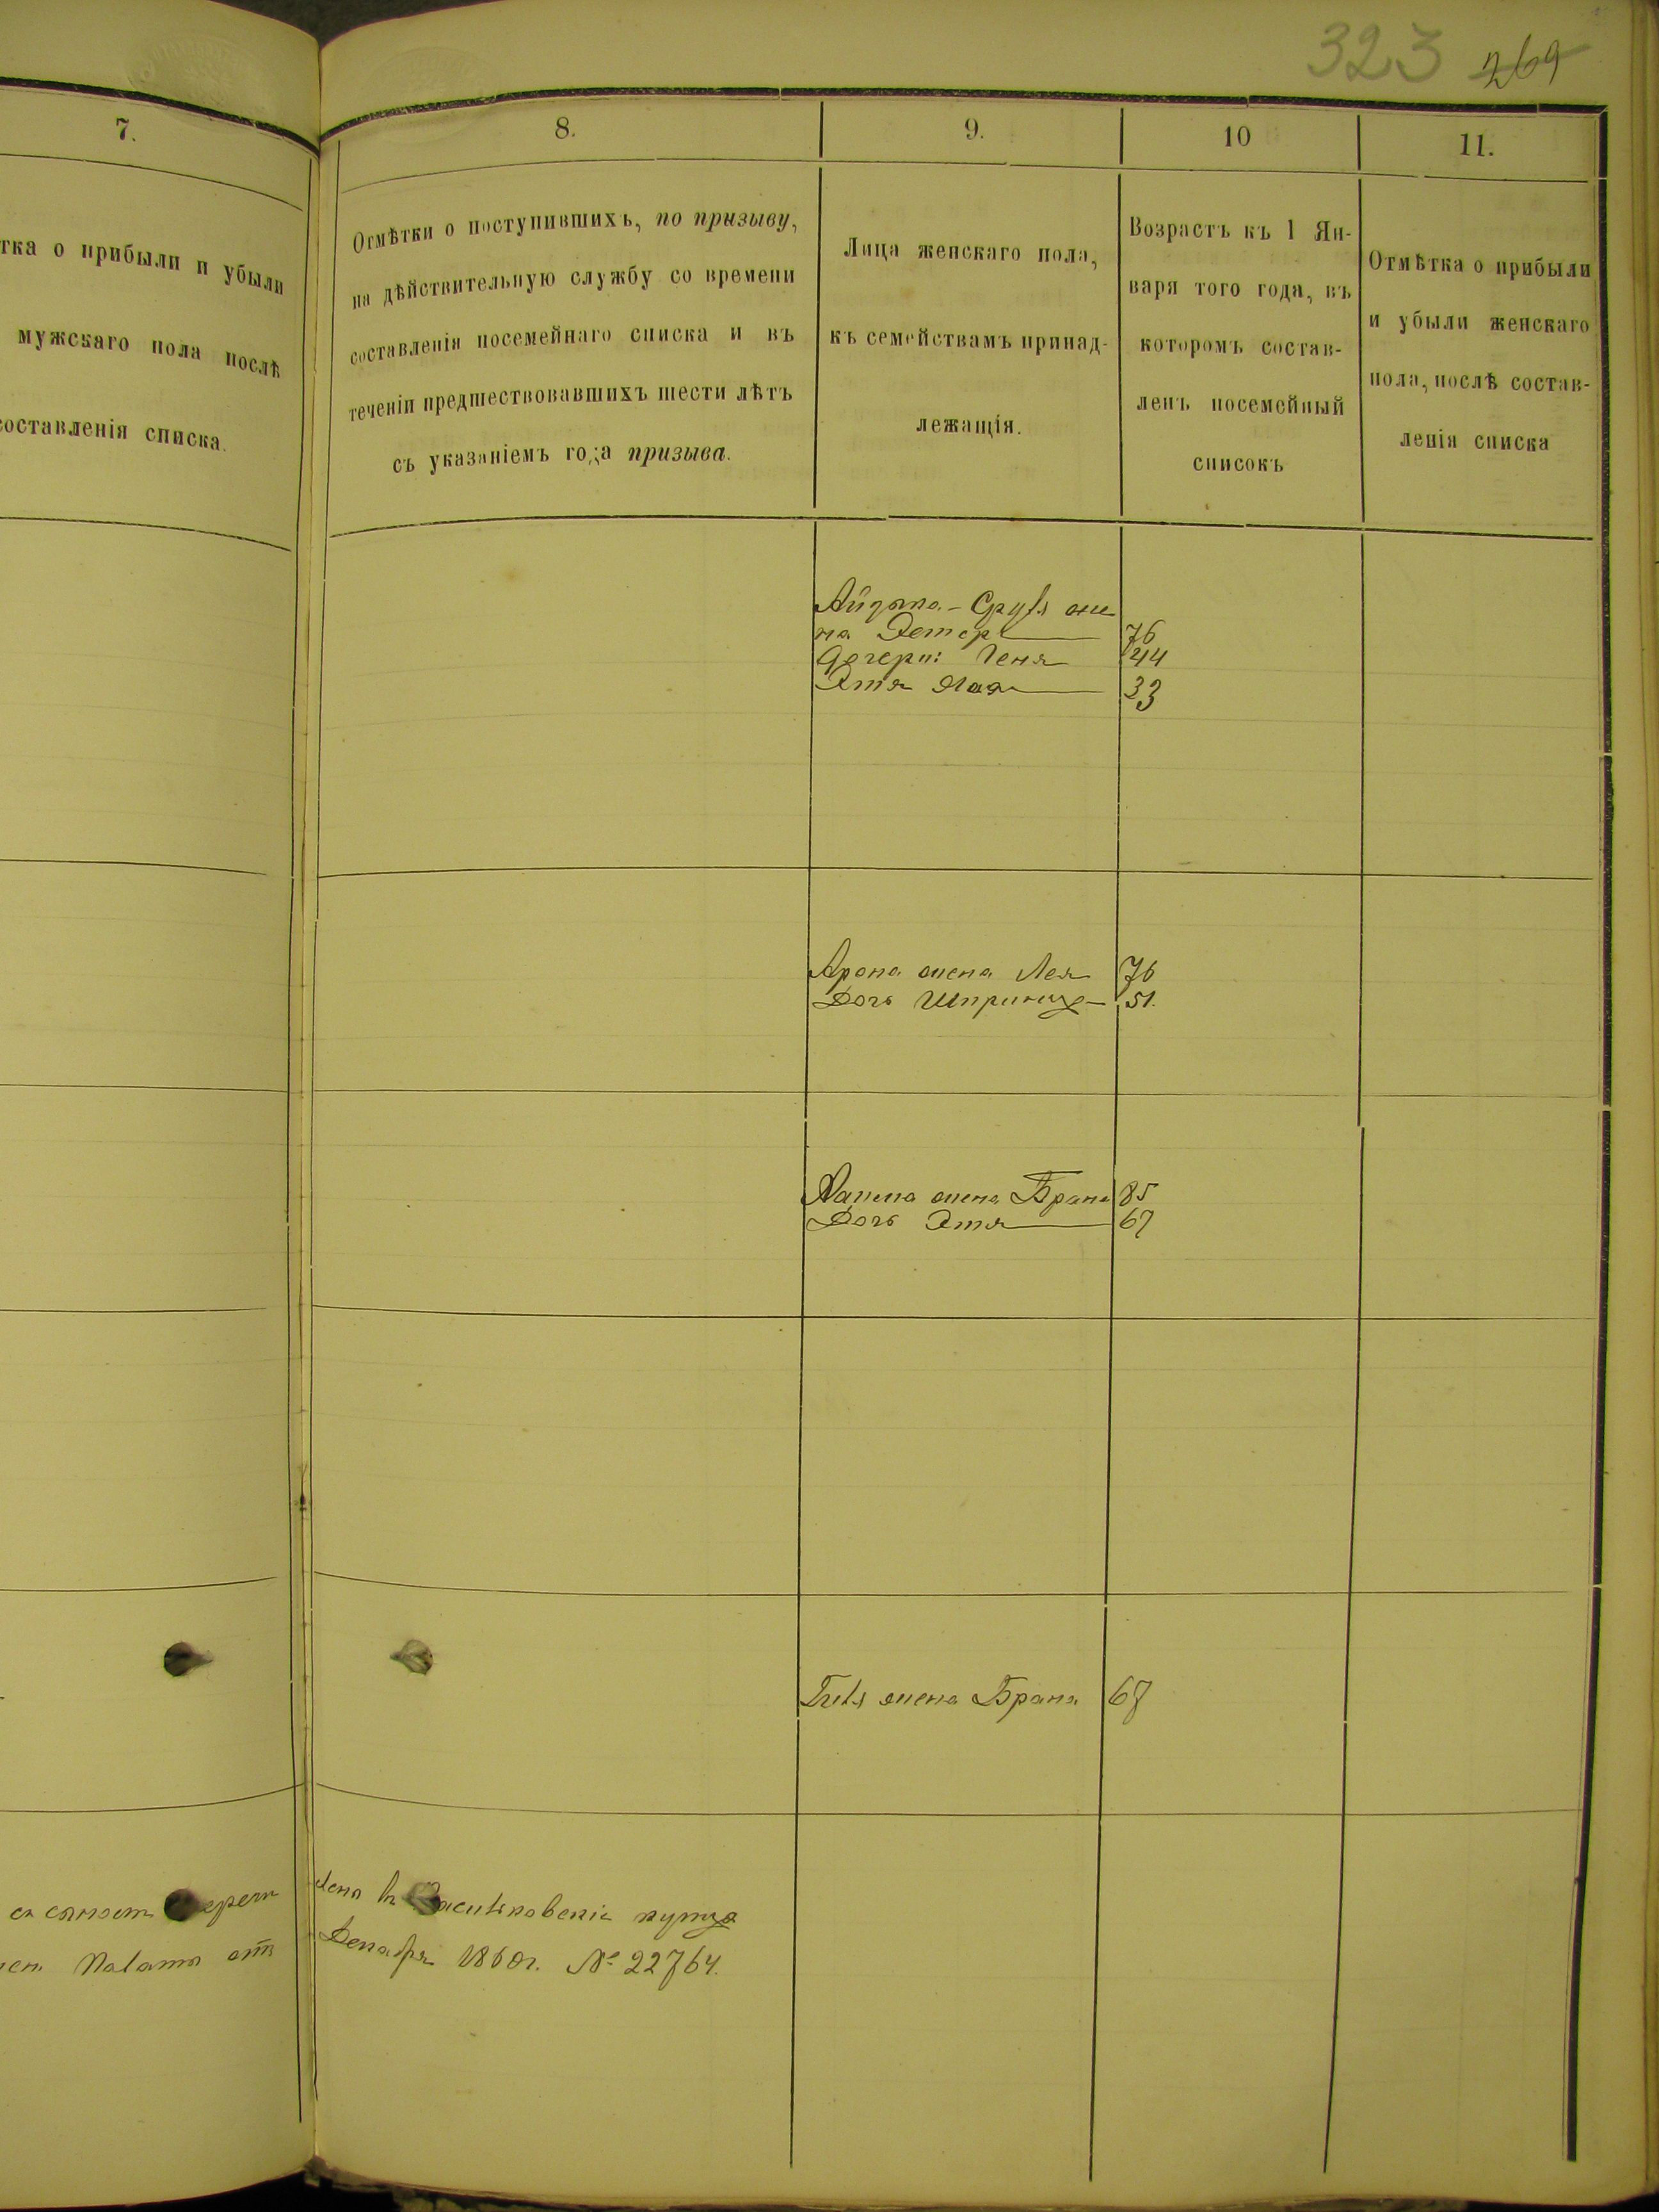 323 269
7.
тка о прибыли и убыли
мужскаго пола послѣ
составленія списка.
8.
Отмѣтки о поступившихъ, по призыву,
на дѣйствительную службу со времени
составленія посемейнаго списка и въ
теченіи предшествовавшихъ шести лѣтъ
съ указаніемъ года призыва.
9.
Лица женскаго пола,
къ семействамъ принад-
лежащія.
10
Возрастъ къ 1 Ян-
варя того года, въ
которомъ состав-
ленъ посемейный
списокъ
11.
Отмѣтка о прибыли
и убыли женскаго
пола, послѣ состав-
ленія списка
же
на 76
Дочери: Геня 44
Этя 33
Арона жена Лея 76
Дочь Шпринца 51.
жена Брана 85
Дочь Этя 67
жена Брана 67
купца
Декабря 1860г. № 22764.
Палаты отъ